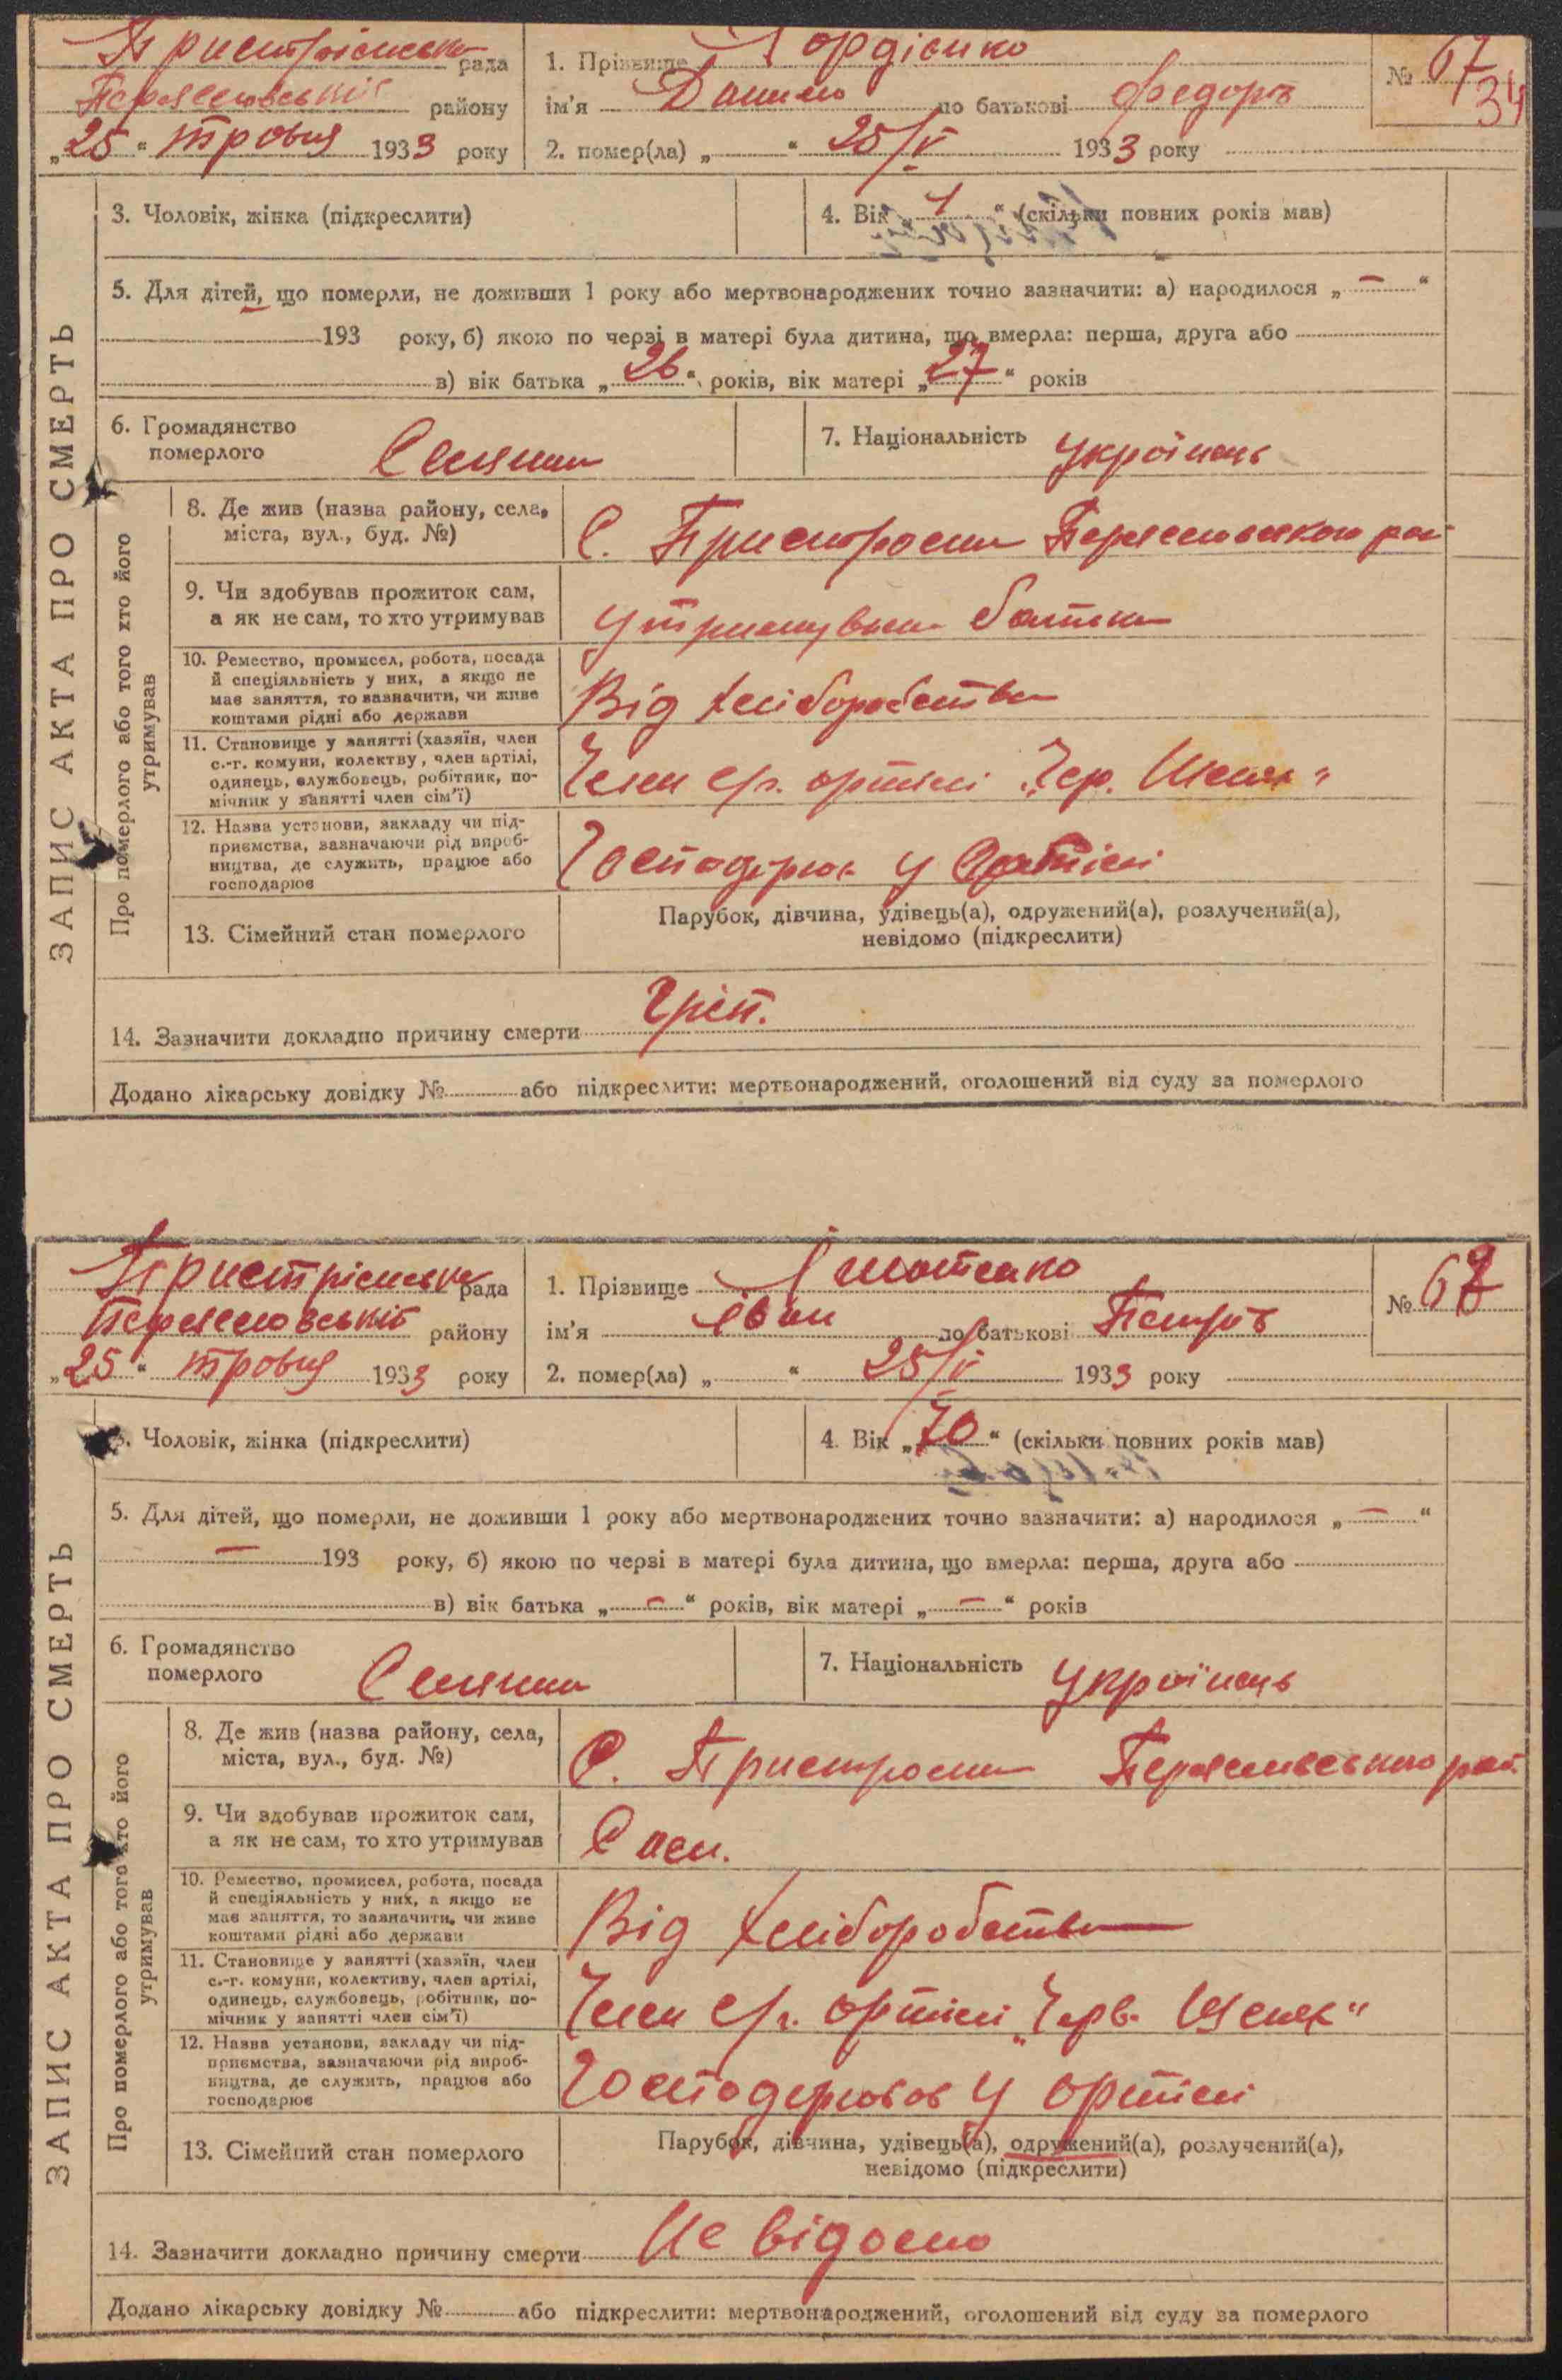 Пристрімська рада
Переяславський району
„25“ травня 1933 року
1. Прізвище Гордієнко
ім'я Данило по батькові Федоров
2. помер(ла) „ “ 25/V 1933 року
№ 67
34
ЗАПИС АКТА ПРО СМЕРТЬ
3. Чоловік, жінка (підкреслити)
4. Вік „1“ (скільки повних років мав)
5. Для дітей, що померли, не доживши 1 року або мертвонароджених точно зазначити: а) народилося „ — “
193 року, б) якою по черзі в матері була дитина, що вмерла: перша, друга або
в) вік батька „26“ років, вік матері „27“ років
6. Громадянство
померлого Селянин
7. Національність Українець
Про померлого або того хто його
утримував
8. Де жив (назва району, села,
міста, вул., буд. №)
С. Пристроми Переяславського рай
9. Чи здобував прожиток сам,
а як не сам, то хто утримував
Утримували батьки
10. Ремество, промисел, робота, посада
й спеціяльність у них, а якщо не
має заняття, то зазначити, чи живе
коштами рідні або держави
Від хліборобства
11. Становище у занятті (хазяїн, член
с.-г. комуни, колектву, член артілі,
одинець, службовець, робітник, по-
мічник у занятті член сім'ї)
Член с/г. артілі „Чер. Шлях“
12. Назва установи, закладу чи під-
приємства, зазначаючи рід вироб-
ництва, де служить, працює або
господарює
у Артілі
13. Сімейний стан померлого
Парубок, дівчина, удівець(а), одружений(а), розлучений(а),
невідомо (підкреслити)
14. Зазначити докладно причину смерти Гріп.
Додано лікарську довідку № або підкреслити: мертвонароджений, оголошений від суду за померлого
Пристрімська рада
Переяславський району
„25“ травня 1933 року
1. Прізвище
ім'я Іван по батькові Петров
2. помер(ла) „ “ 25/V 1933 року
№ 68
ЗАПИС АКТА ПРО СМЕРТЬ
3. Чоловік, жінка (підкреслити)
4. Вік „70“ (скільки повних років мав)
5. Для дітей, що померли, не доживши 1 року або мертвонароджених точно зазначити: а) народилося „ — “
— 193 року, б) якою по черзі в матері була дитина, що вмерла: перша, друга або
в) вік батька „ — “ років, вік матері „ — “ років
6. Громадянство
померлого Селянин
7. Національність Українець
Про померлого або того хто його
утримував
8. Де жив (назва району, села,
міста, вул., буд. №)
С. Пристроми Переяславського рай.
9. Чи здобував прожиток сам,
а як не сам, то хто утримував
Сам.
10. Ремество, промисел, робота, посада
й спеціяльність у них, а якщо не
має заняття, то зазначити, чи живе
коштами рідні або держави
Від хліборобства
11. Становище у занятті (хазяїн, член
с.-г. комуни, колективу, член артілі,
одинець, службовець, робітник, по-
мічник у занятті член сім'ї)
Член с/г. артілі „Черв. Шлях“
12. Назва установи, закладу чи під-
приємства, зазначаючи рід вироб-
ництва, де служить, працює або
господарює
Господарював у артілі
13. Сімейний стан померлого
Парубок, дівчина, удівець(а), одружений(а), розлучений(а),
невідомо (підкреслити)
14. Зазначити докладно причину смерти Не відомо
Додано лікарську довідку № або підкреслити: мертвонароджений, оголошений від суду за померлого